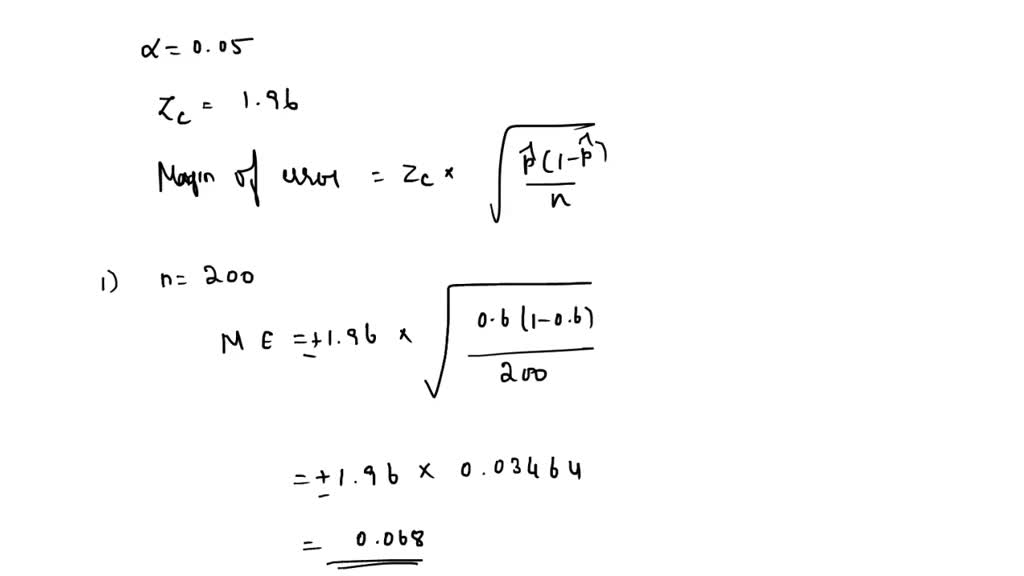 α = 0.05
Zc = 1.96
Margin of error = Zc * √(p̂(1-p̂)/n)
1) n= 200
M E = ±1.96 × √(0.6(1-0.6)/200)
= ±1.96 × 0.03464
= 0.068